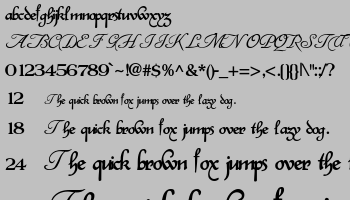 abcdefghijklmnopqrstuvwxyz
ABCDEFGHIJKLMNOPQRSTU
0123456789`~!@#$%^&*()-_+=>,<.{}[]|\"':;/?
12 The quick brown fox jumps over the lazy dog.
18 The quick brown fox jumps over the lazy dog.
24 The quick brown fox jumps over the